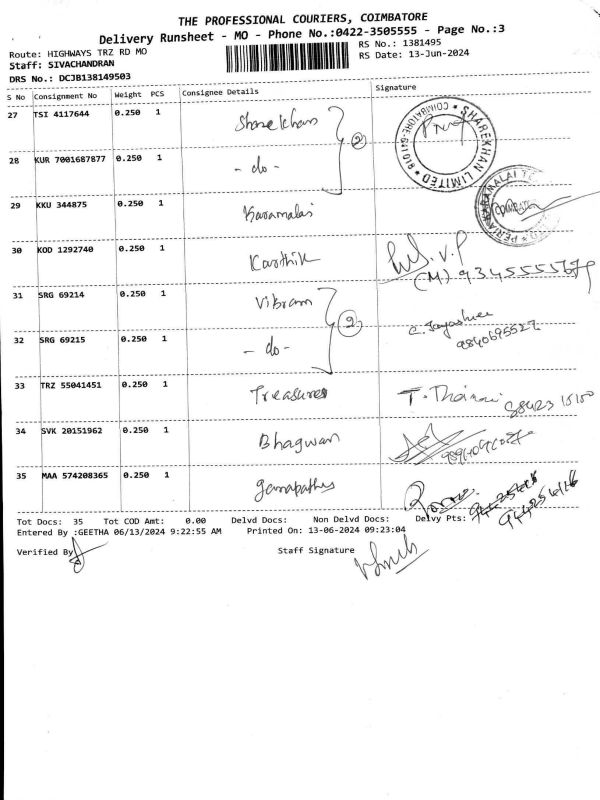 THE PROFESSIONAL COURIERS, COIMBATORE
Delivery Runsheet - MO - Phone No.:0422-3505555 - Page No.:3
Route: HIGHWAYS TRZ RD MO
RS No.: 1381495
Staff: SIVACHANDRAN
RS Date: 13-Jun-2024
DRS No.: DCJB138149503
S No Consignment No Weight PCS Consignee Details Signature
27 TSI 4117644 0.250 1 Sharekhan
SHAREKHAN LIMITED * COIMBATORE-641018 *
28 KUR 7001687877 0.250 1 - do - 2
29 KKU 344875 0.250 1 Karamalai
30 KOD 1292740 0.250 1 Karthik
(M) 9345555679
31 SRG 69214 0.250 1 Vikram
32 SRG 69215 0.250 1 - do - 2
C. Jayashree
9840695522
33 TRZ 55041451 0.250 1 Treasures
34 SVK 20151962 0.250 1 Bhagwan
35 MAA 574208365 0.250 1 Ganapathy
Tot Docs: 35 Tot COD Amt: 0.00 Delvd Docs: Non Delvd Docs: Delvy Pts:
Entered By :GEETHA 06/13/2024 9:22:55 AM Printed On: 13-06-2024 09:23:04
Verified By
Staff Signature